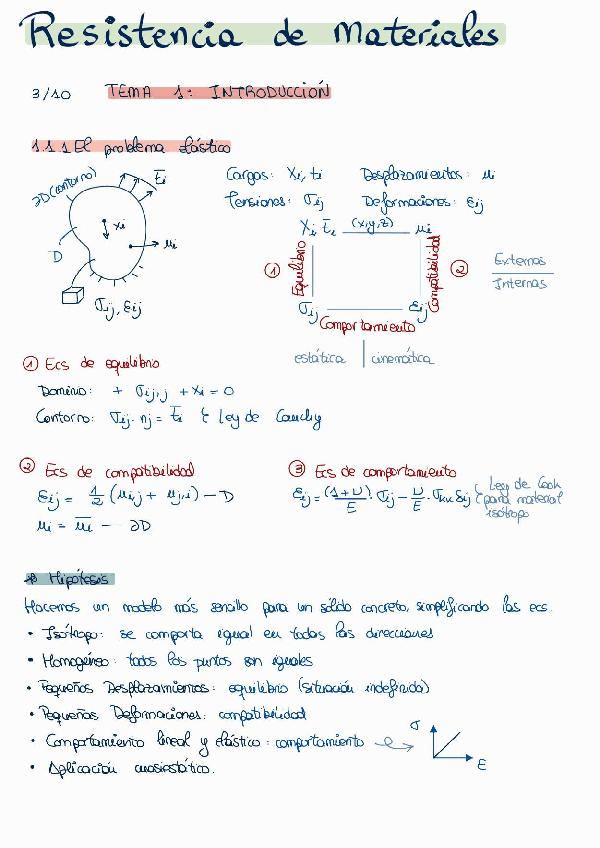 Resistencia de Materiales
3/10 TEMA 1: INTRODUCCIÓN
1.1.1 El problema elástico
∂D (contorno) t̄i
Xi
D ui
σij, εij
Cargas: Xi, ti Desplazamientos: ui
Tensiones: σij Deformaciones: εij
Xi t̄i (x,y,z) ui
① Equilibrio Compatibilidad ② Externas
Internas
σij εij
Comportamiento
estática | cinemática
① Ecs de equilibrio
Dominio: + σij,j + Xi = 0
Contorno: σij · nj = t̄i Ley de Cauchy
② Ecs de compatibilidad
εij = 1/2 (ui,j + uj,i) — D
ui = ūi — ∂D
③ Ecs de comportamiento
εij = (1+ν)/E · σij - ν/E · σkk δij
Ley de Hook
para material
isótropo
* Hipótesis
Hacemos un modelo más sencillo para un sólido concreto, simplificando las ecs.
• Isótropo: se comporta igual en todas las direcciones
• Homogéneo: todos los puntos son iguales
• Pequeños Desplazamientos: equilibrio (situación indefinida)
• Pequeñas Deformaciones: compatibilidad
• Comportamiento lineal y elástico: comportamiento → σ
E
• Aplicación cuasiestática.